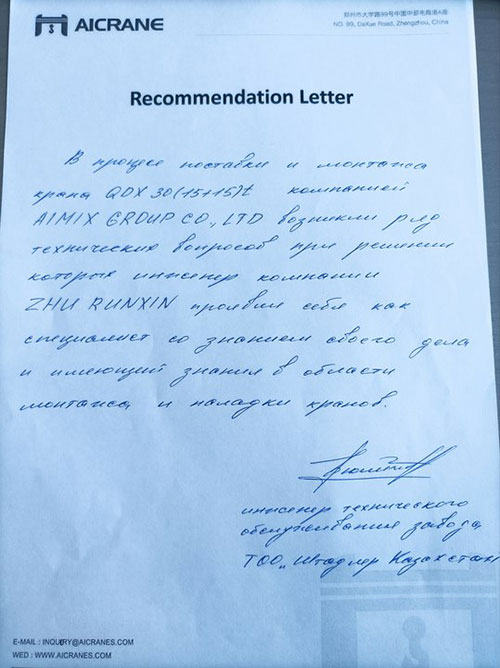 AICRANE
郑州市大学路99号中国中部电商港A座
NO. 99, DaXue Road, Zhengzhou, China
Recommendation Letter
В процессе поставки и монтажа
крана QDX 30(15+15)t компанией
AIMIX GROUP CO., LTD возникли ряд
технических вопросов при решении
которых инженер компании
ZHU RUNXIN проявил себя как
специалист со знанием своего дела
и имеющий знания в области
монтажа и наладки кранов.
инженер технического
обслуживания завода
ТОО „Штадлер Казахстан
E-MAIL : INQUIRY@AICRANES.COM
WED : WWW.AICRANES.COM